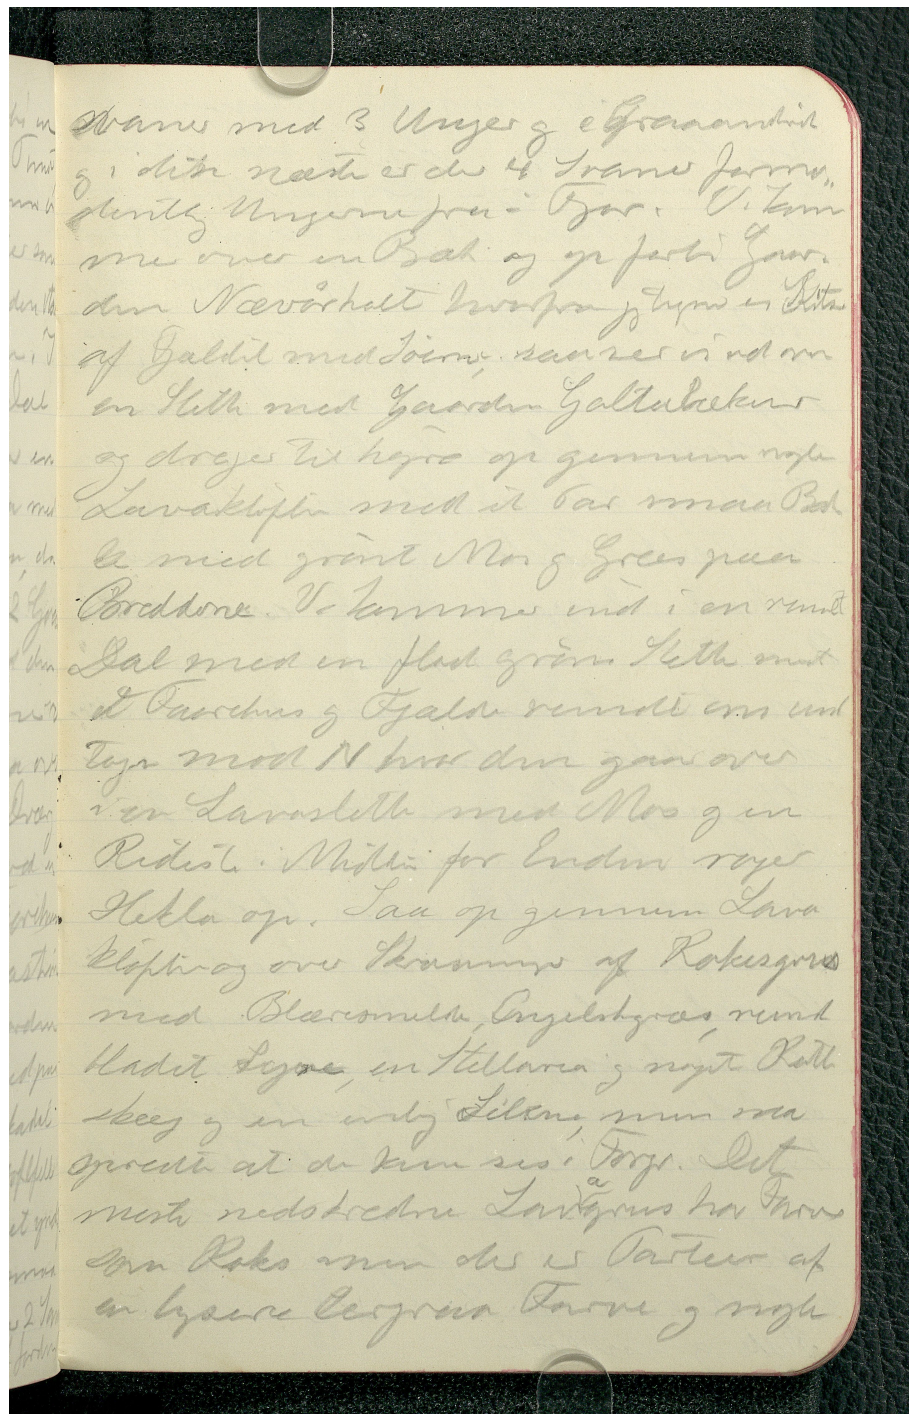 Svaner med 3 Unger og i Graaandvid
og i den næste er der 4 Svaner formo„
dentlig Ungerne fra i Fjor. Vi kom
me over en Bæk og op forbi Gaar„
den Nævårholt hvorfra jeg tegner en Skitse
af Fjældet med Søerne, saa ser vi ud over
en Slette med Gaarden Galtalækur
og drejer til højre op gennem nogle
Lavakløfter med et Par smaa Bæk
ke med grönt Mos og Græs paa
Bredderne. Vi kommer ind i en rund
Dal med en flad grön Slette med
et Faarehus og Fjælde rundt om und
tagen mod N hvor den gaar over
i en Lavaslette med Mos og en
Ridesti i Midten for Enden rager
Hekla op. Saa op gennem Lava
kløfter og over Skraaninger af Koksgrus
med Blæresmelde, Engelskgræs, rund
bladet Syre, en Stellaria og noget Katte
skæg og en enlig Silene, men saa
spredte at de kun ses i Forgr. Det
meste nedskredne Lavagrus har Farve
som Koks men der er Partier af
en lysere lergraa Farve og nogle